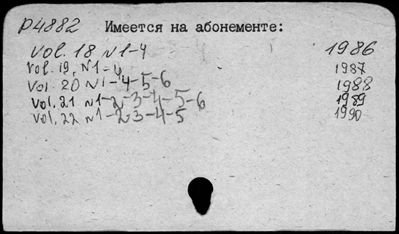 P4882 Имеется на абонементе:
Vol. 18 N1-4 1986
Vol. 19, N1-4 1987
Vol. 20 N1-4-5-6 1988
Vol. 21 N1-2-3-4-5-6 1989
Vol. 22 N1-2-3-4-5 1990